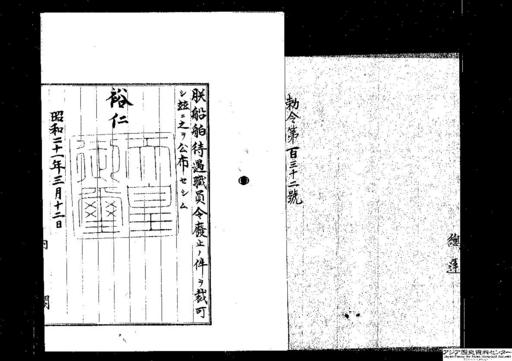 勅令第百三十二號
朕船舶待遇職員令廢止ノ件ヲ裁可
シ茲ニ之ヲ公布セシム
裕仁
天皇御璽
昭和二十一年三月十二日
内閣
アジア歴史資料センター